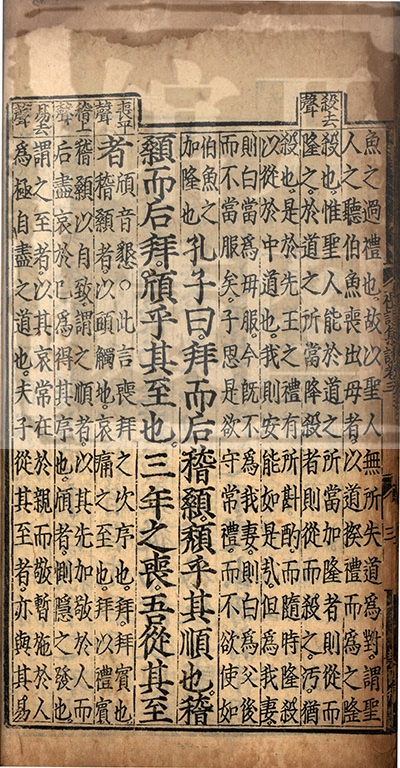 殺去
聲
魚之過禮也故以聖人無所失道為對謂聖
人之聽伯魚喪出母者以道揆禮而為之隆
殺也惟聖人能於道之所當加隆者則從而
隆之於道之所當降殺者則從而殺之汚猶
殺也是於先王之禮有所斟酌而隨時隆殺
以從於中道也我則安能如是哉但為我妻
則白當為母服今既不為我妻則白為父後
而不當服矣子思是欲守常禮而不欲使如
伯魚之
加隆也
孔子曰拜而后稽顙頹乎其順也稽
顙而后拜頎乎其至也三年之喪吾從其至
喪平
聲
稽上
聲
易去
聲
者
頎音懇○此言喪拜之次序也拜拜賓也
稽顙者以頭觸地哀痛之至也拜以禮賓
稽顙以自致謂之順者以其先加敬於人而
后盡哀於己為得其序也頎者惻隱之發也
謂之至者以其哀常在於親而敬暫施於人
為極自盡之道也夫子從其至者亦與其易